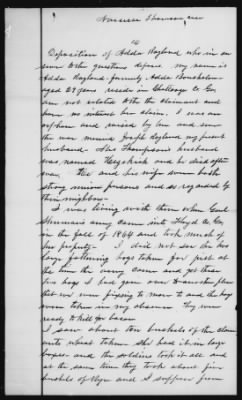 Deposition of Adda Ragland who in an
swer to the questions depose. my name is
Adda Ragland formerly Adda
aged 27 years reside in Chattooga Co Ga
am not related to the claimant and
have no interest her claim. I was an
orphan and raised by her and since
the war married Joseph Ragland my present
husband. Mrs Thompsons husband
was named Hezekiah and he died after
war. He and his wife were both
strong union persons and so regarded by
their neighbors
I was living with them when Genl
Shermans army came into Floyd Co Ga
in the fall of 1864 and took much of
her property. I did not see her two
large fattening hogs taken for just at
the time the army came and got these
two hogs I had gone over to another place
that we were preparing to move to and the hogs
were taken in my absence They were
ready to kill for bacon
I saw about ten bushels of the
salt taken she had it in large
boxes and the soldiers took it all and
at the same time they took about five
bushels of Rye and I suppose from